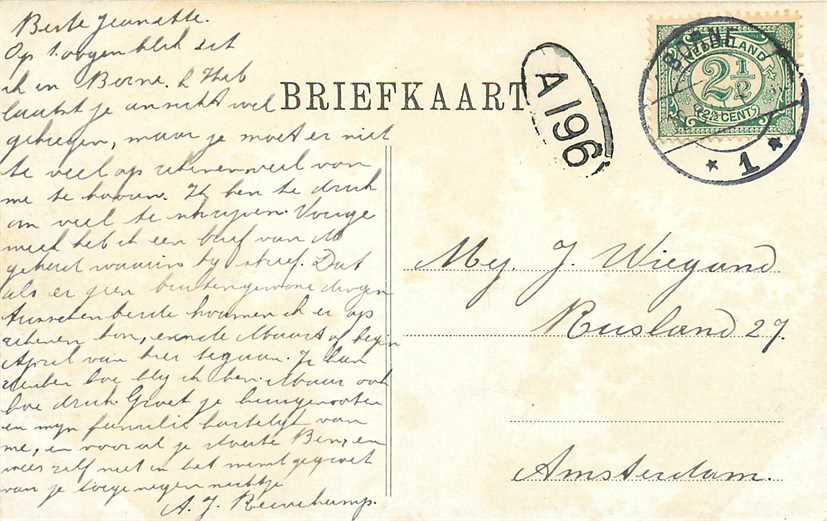 Beste Jeanette.
Op 't oogenblik zit
ik in Borne. k Heb
laatst je ansicht wel
gekregen, maar je moet er niet
te veel op rekenen veel van
me te hooren. Ik ben te druk
om veel te schrijven. Vorige
week heb ik een brief van
gehad waarin hij schreef. Dat
als er geen buitengewone dingen
tusschenbeide kwamen ik er op
rekenen kon, einde Maart of begin
April van hier te gaan. Je kan
denken hoe blij ik ben. Maar ook
hoe druk. Groet je huisgenooten
en mijn familie hartelijk van
me, en vooral je zuster en
wees zelf niet in het minst gegroet
van je toegenegen
A. J.
BRIEFKAART
A196
BORNE
NEDERLAND
2½
(2½ CENT)
* 1 *
Mej. J. Wiegand
Rusland 27.
Amsterdam.